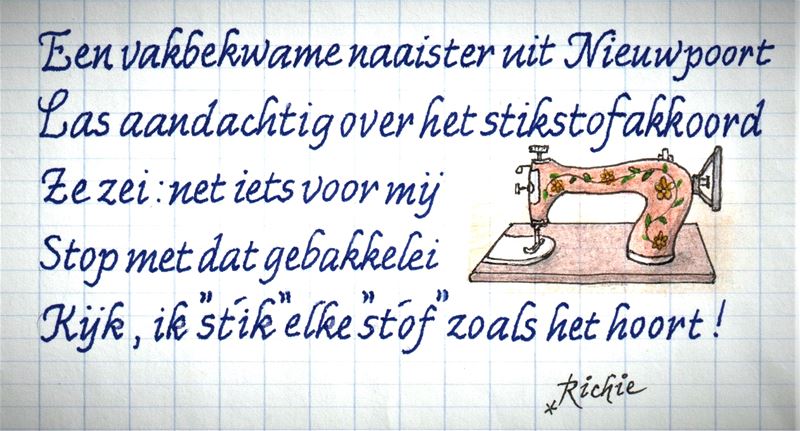 Een vakbekwame naaister uit Nieuwpoort
Las aandachtig over het stikstofakkoord
Ze zei : net iets voor mij
Stop met dat gebakkelei
Kijk , ik "stík" elke "stóf" zoals het hoort !
Richie